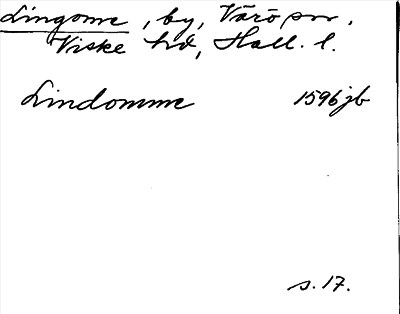 Lingome, by, Värö sn,
Viske hd, Hall. l.
Lindomme 1596 jb
s. 17.